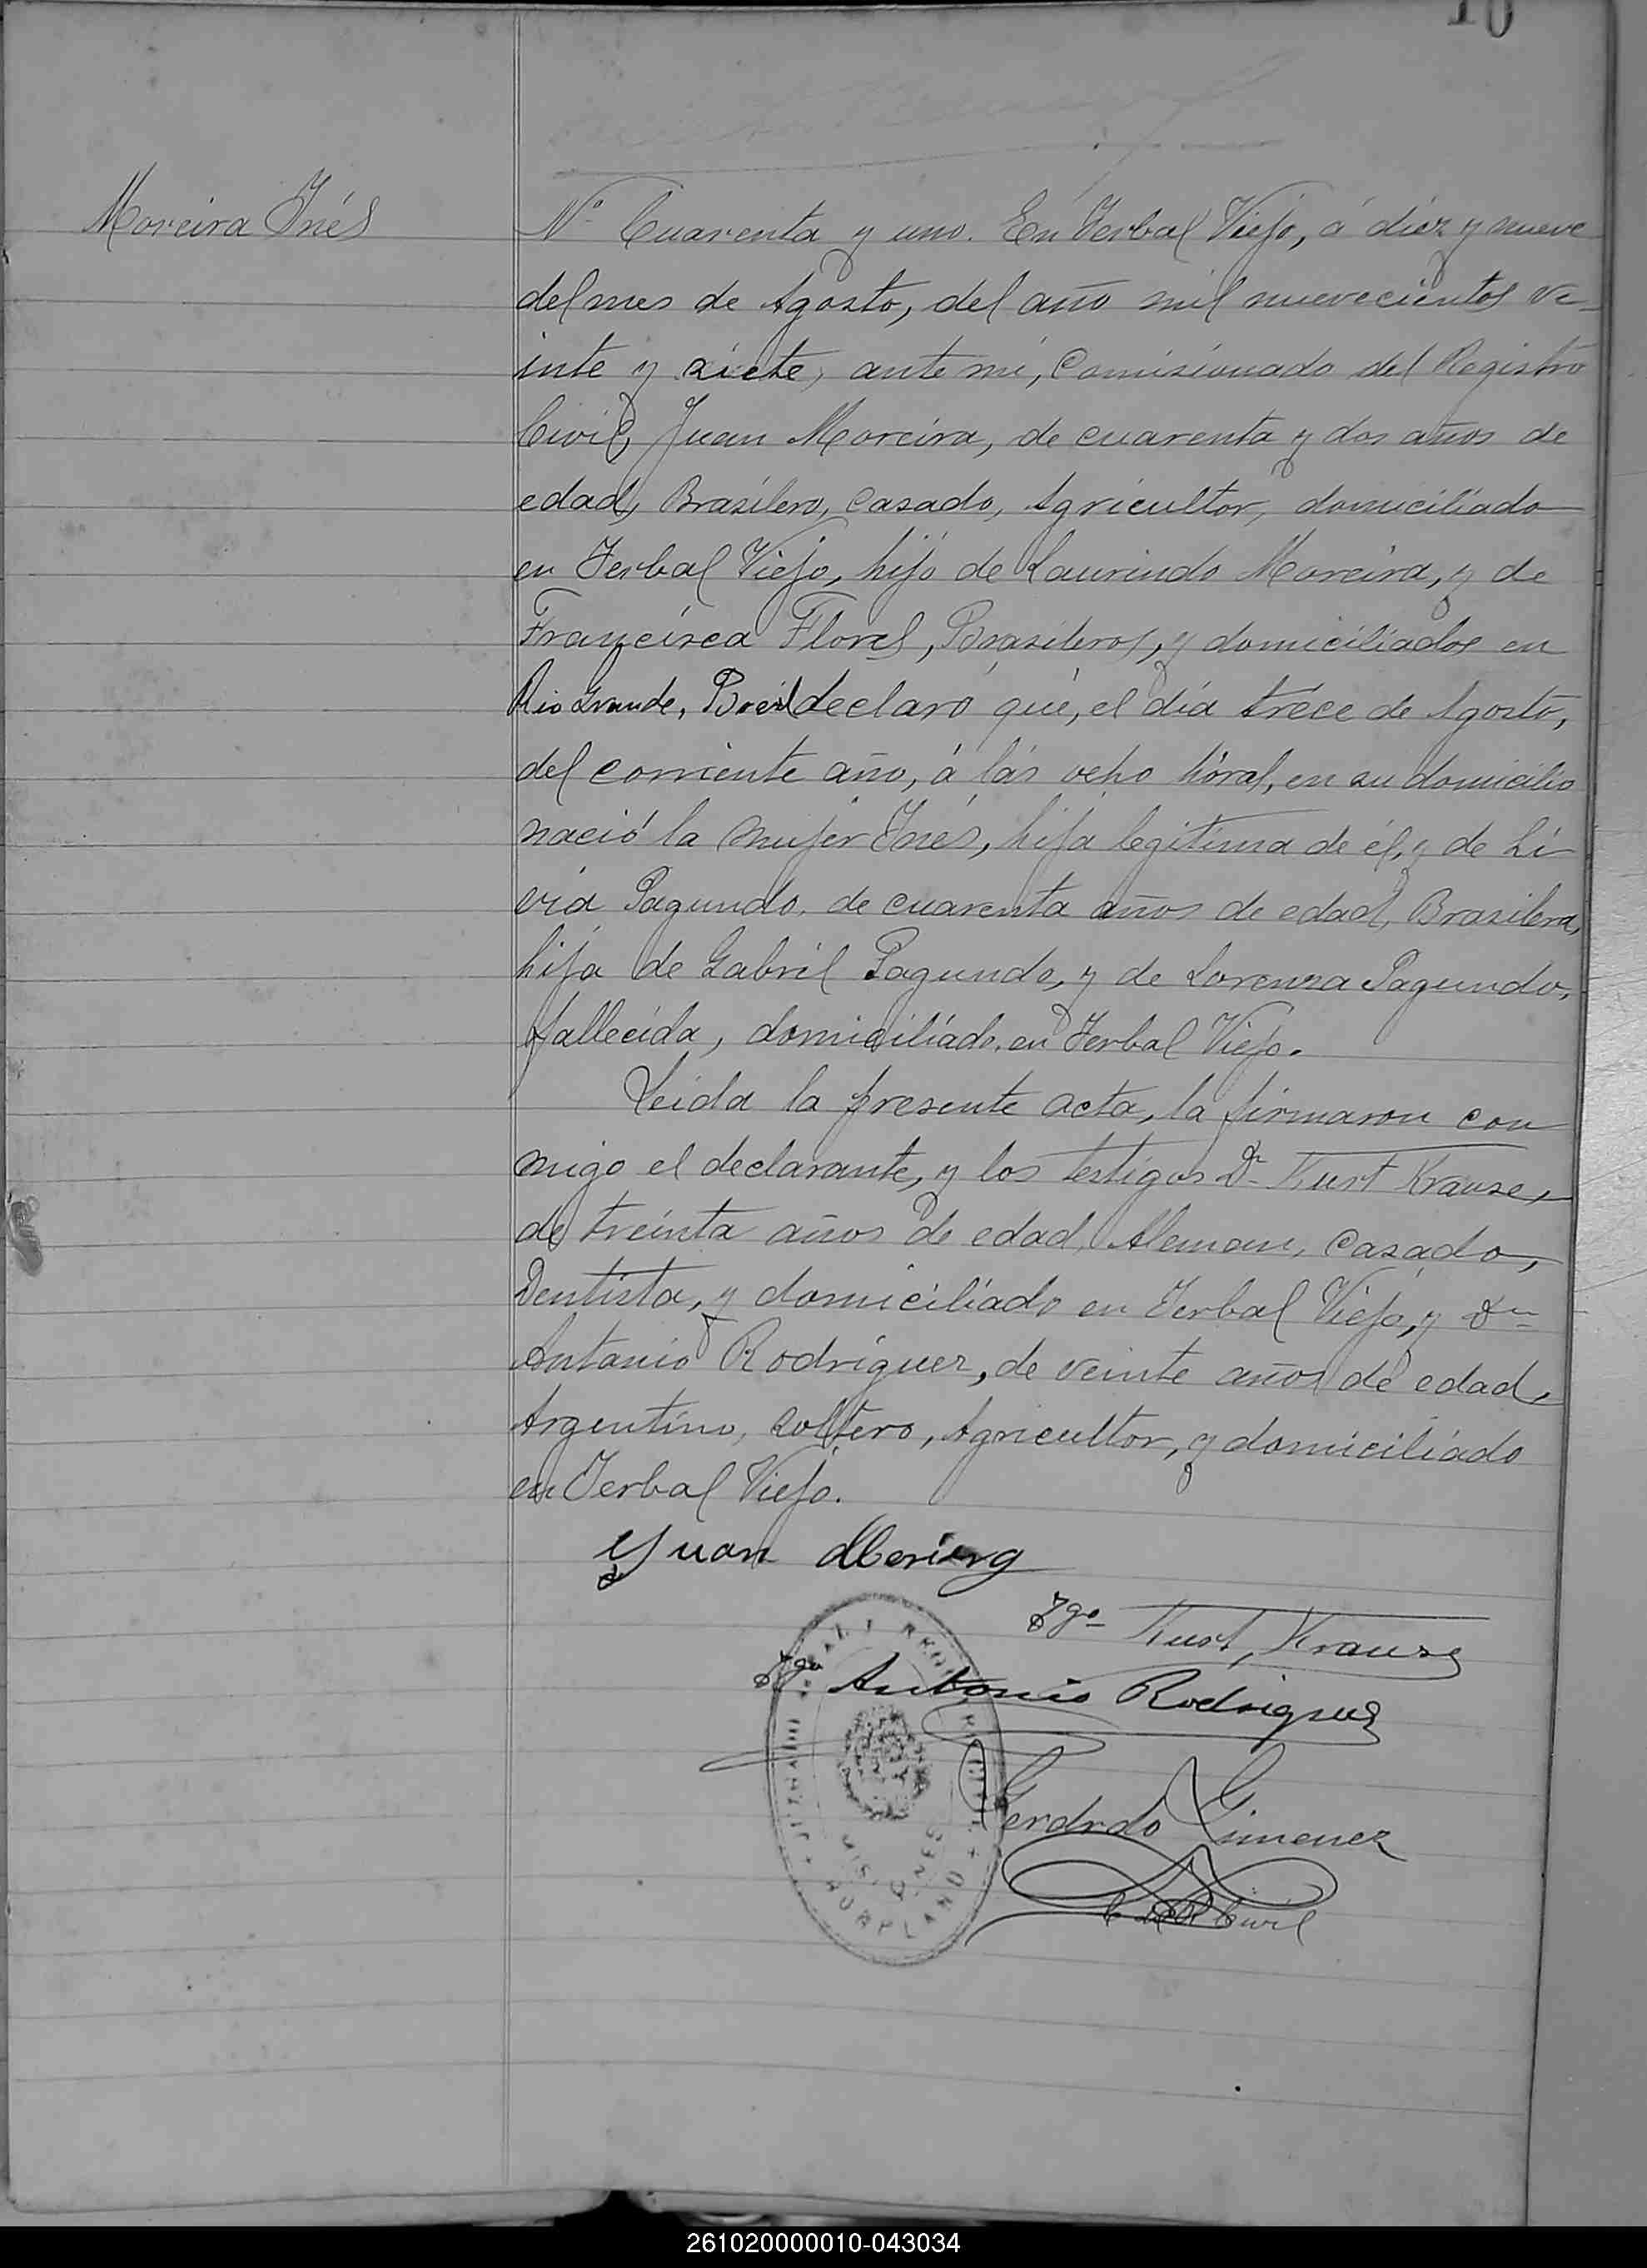 10
Moreira Inés
Nº Cuarenta y uno. En Yerbal Viejo, á diéz y nueve
del mes de Agosto, del año mil nuevecientos ve-
inte y siete, ante mi, Comisionado del Registro
Civil, Juan Moreira, de cuarenta y dos años de
edad, Brasilero, casado, Agricultor, domiciliado
en Yerbal Viejo, hijo de Laurindo Moreira, y de
Francisca Flores, Brasileros, y domiciliados en
Rio Grande, Brasil declaró que, el día tréce de Agosto,
del corriente año, á lás ocho hóras, en su domicilio
nació la mujer Inés, hija legitima de él, y de Li-
via Pagundo, de cuarenta años de edad, Brasilera,
hija de Gabril Pagundo, y de Lorenza Pagundo,
fallecida, domiciliado, en Yerbal Viejo.
Leida la presente acta, la firmaron con
migo el declarante, y los testigos Dn Kurt Krause,
de treinta años de edad, Aleman, casado,
Dentista, y domiciliado en Yerbal Viejo, y Dn
Antonio Rodriguez, de veinte años de edad,
Argentino, soltero, Agricultor, y domiciliado
en Yerbal Viejo.
Juan
Tgo Kurt, Krause
Tgo Antonio Rodriguez
Gerardo Gimenez
C del R Civil
MISIONES
BONPLAND
261020000010-043034